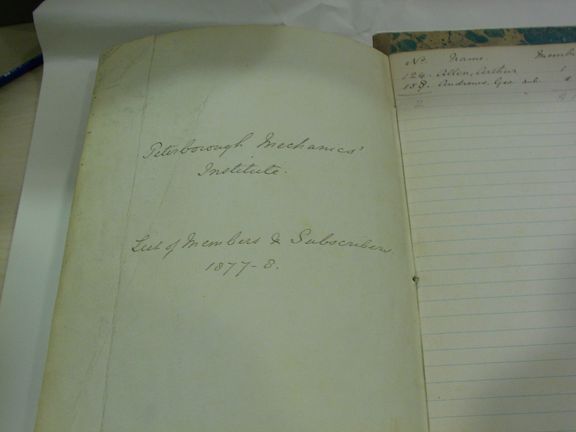 Peterborough Mechanics'
Institute.
List of Members & Subscribers.
1877-8.
No. Name
124. Allin, Arthur
Andrews, Geo